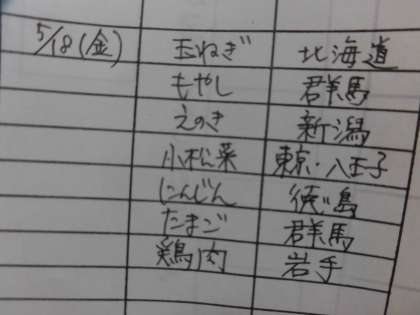 5/18(金) 玉ねぎ 北海道
もやし 群馬
えのき 新潟
小松菜 東京・八王子
にんじん 徳島
たまご 群馬
鶏肉 岩手